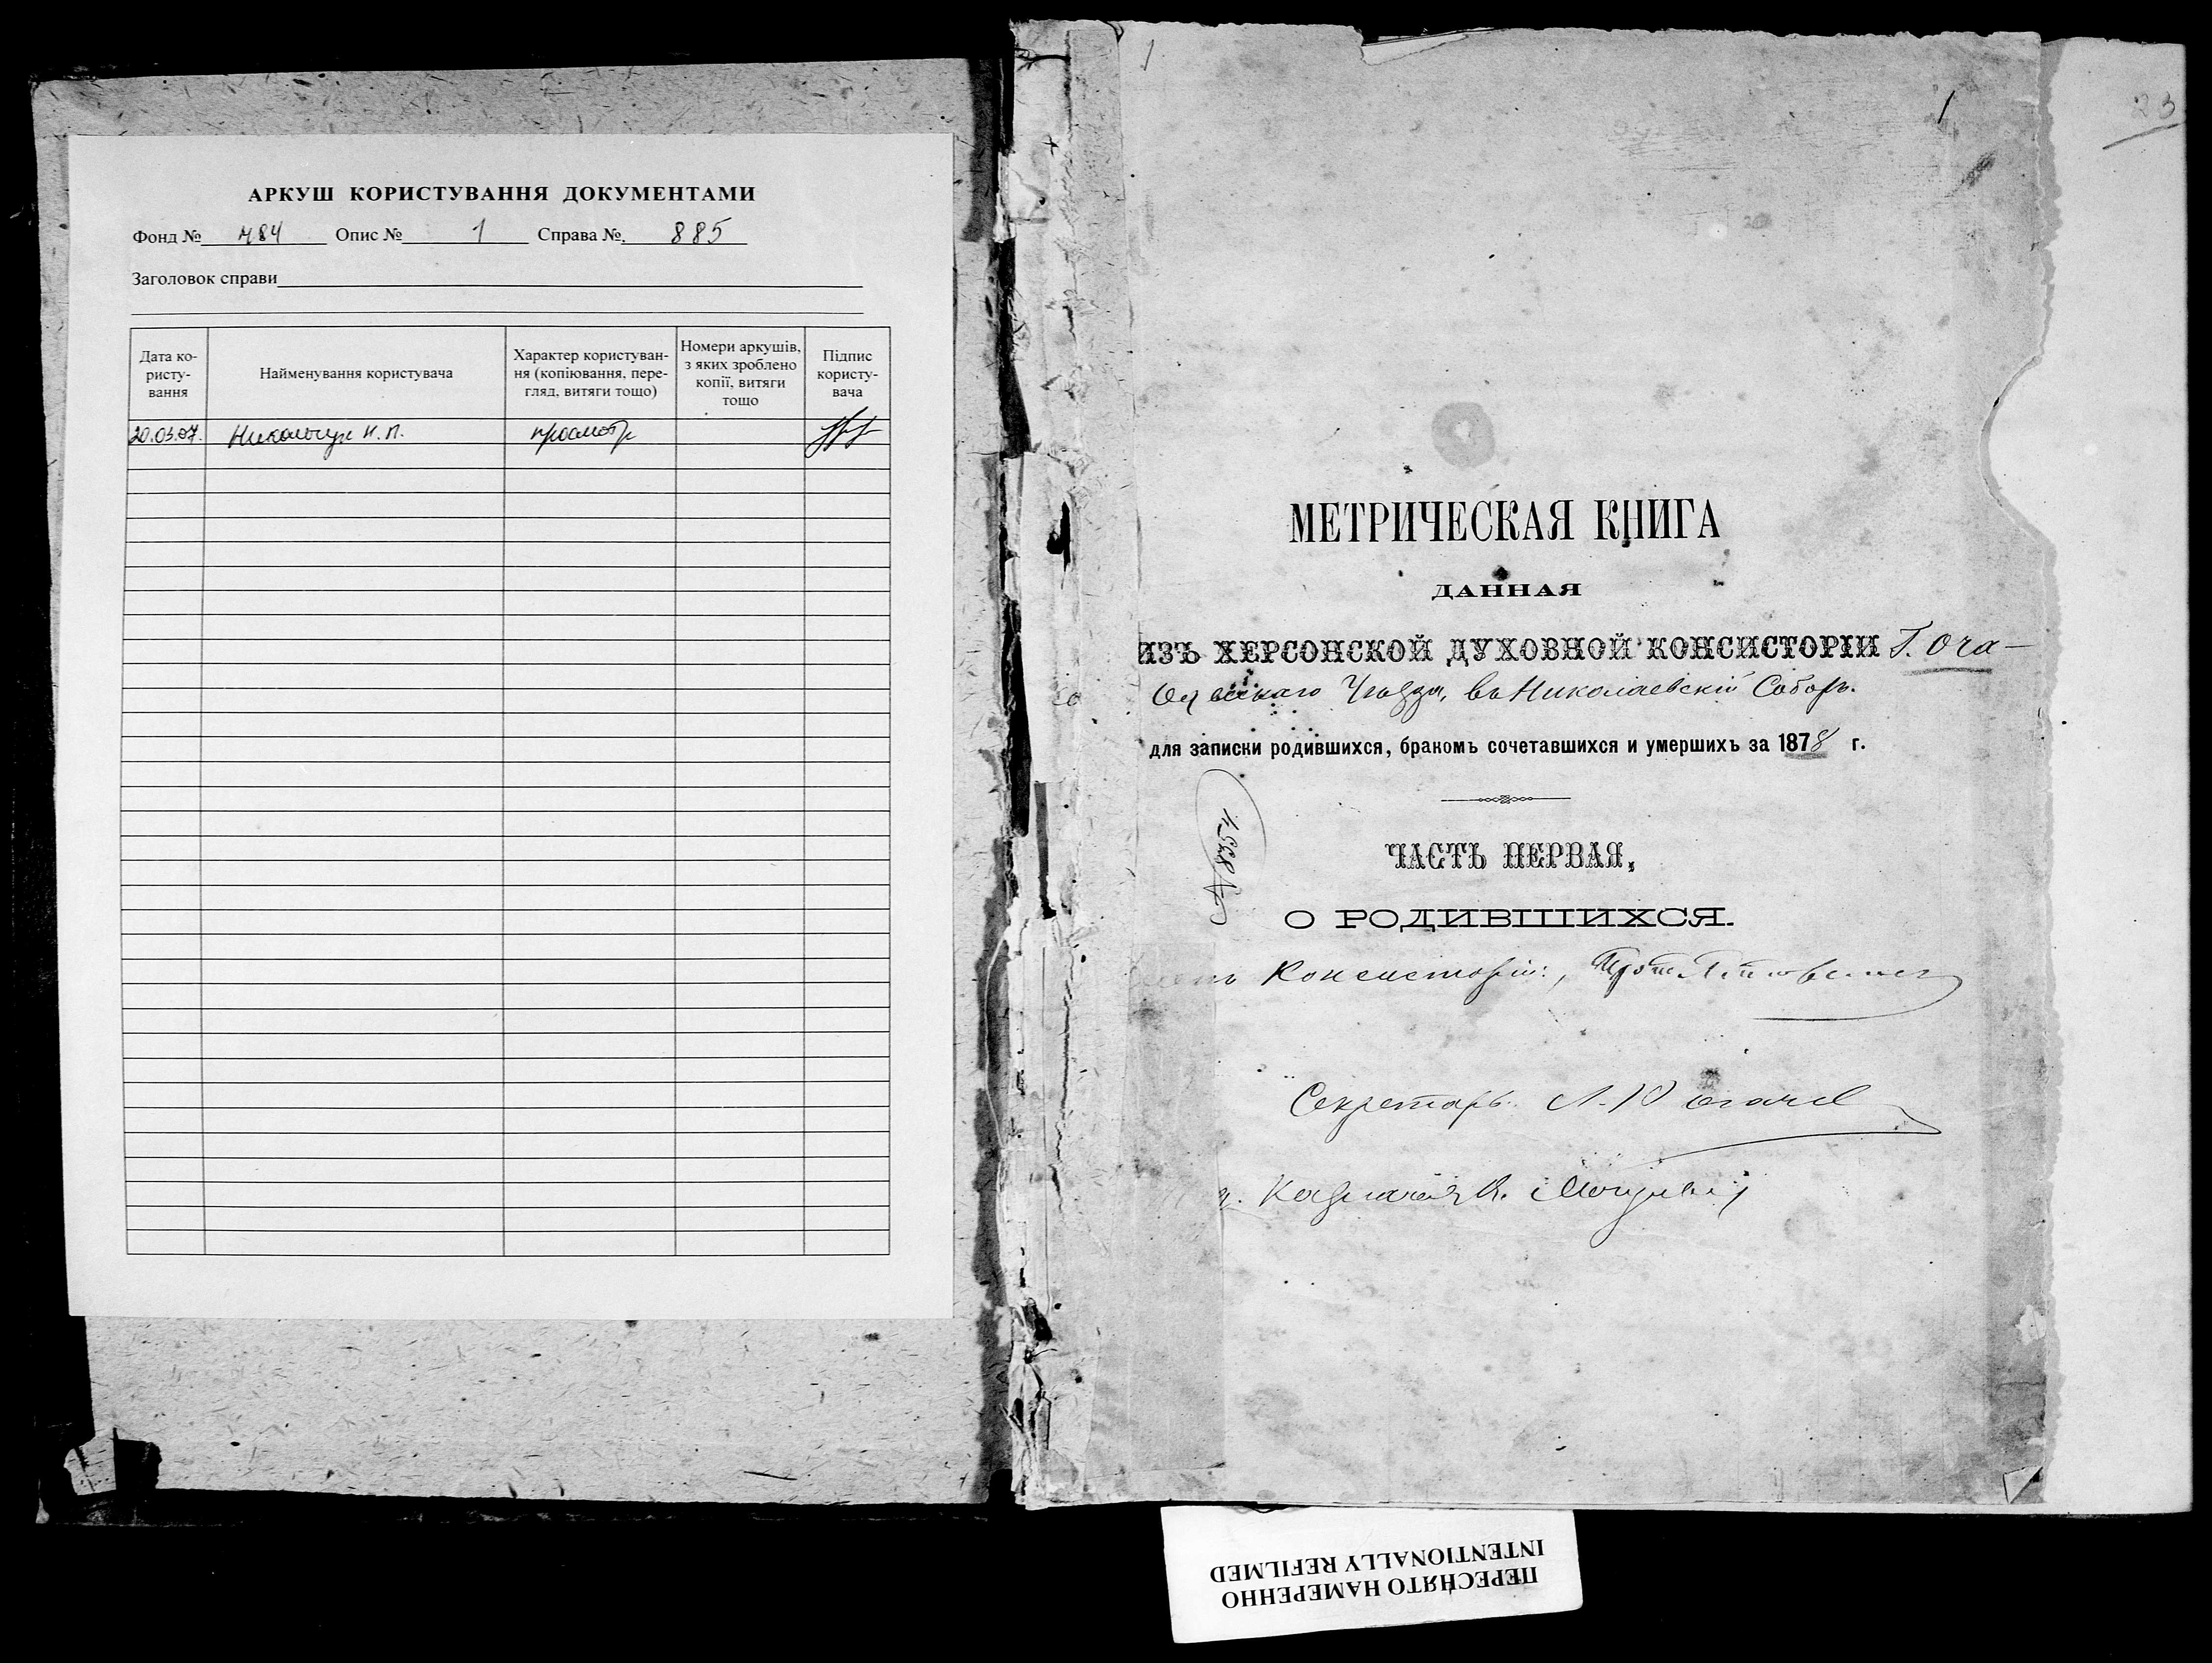 АРКУШ КОРИСТУВАННЯ ДОКУМЕНТАМИ
Фонд № 484 Опис № 1 Справа № 885
Заголовок справи
Дата ко-
ристу-
вання
Найменування користувача
Характер користуван-
ня (копіювання, пере-
гляд, витяги тощо)
Номери аркушів,
з яких зроблено
копії, витяги
тощо
Підпис
користу-
вача
20.03.07. Никольчук Н. П. просмотр
1
1
23
МЕТРИЧЕСКАЯ КНИГА
ДАННАЯ
ИЗЪ ХЕРСОНСКОЙ ДУХОВНОЙ КОНСИСТОРІИ Г. Оча-
Уѣзда, въ Николаевскій Соборъ.
для записки родившихся, бракомъ сочетавшихся и умершихъ за 1878 г.
ЧАСТЬ ПЕРВАЯ,
О РОДИВШИХСЯ.
Консисторіи, Прот.
Секретарь
Казначея
ПЕРЕСНЯТО НАМЕРЕННО
INTENTIONALLY REFILMED